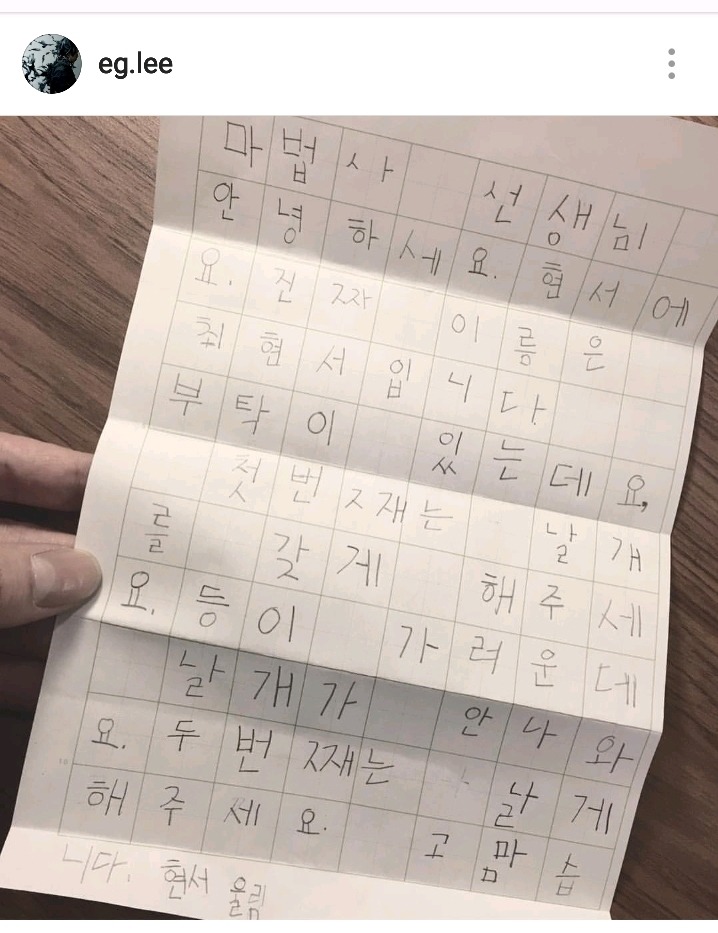 eg.lee
마법사 선생님
안녕하세요. 현서에
요. 진짜 이름은
최현서입니다.
부탁이 있는데요,
첫번째는 날개
를 갖게 해주세
요. 등이 가려운데
날개가 안나와
요. 두번째는 날게
해주세요. 고맘습
니다. 현서 올림